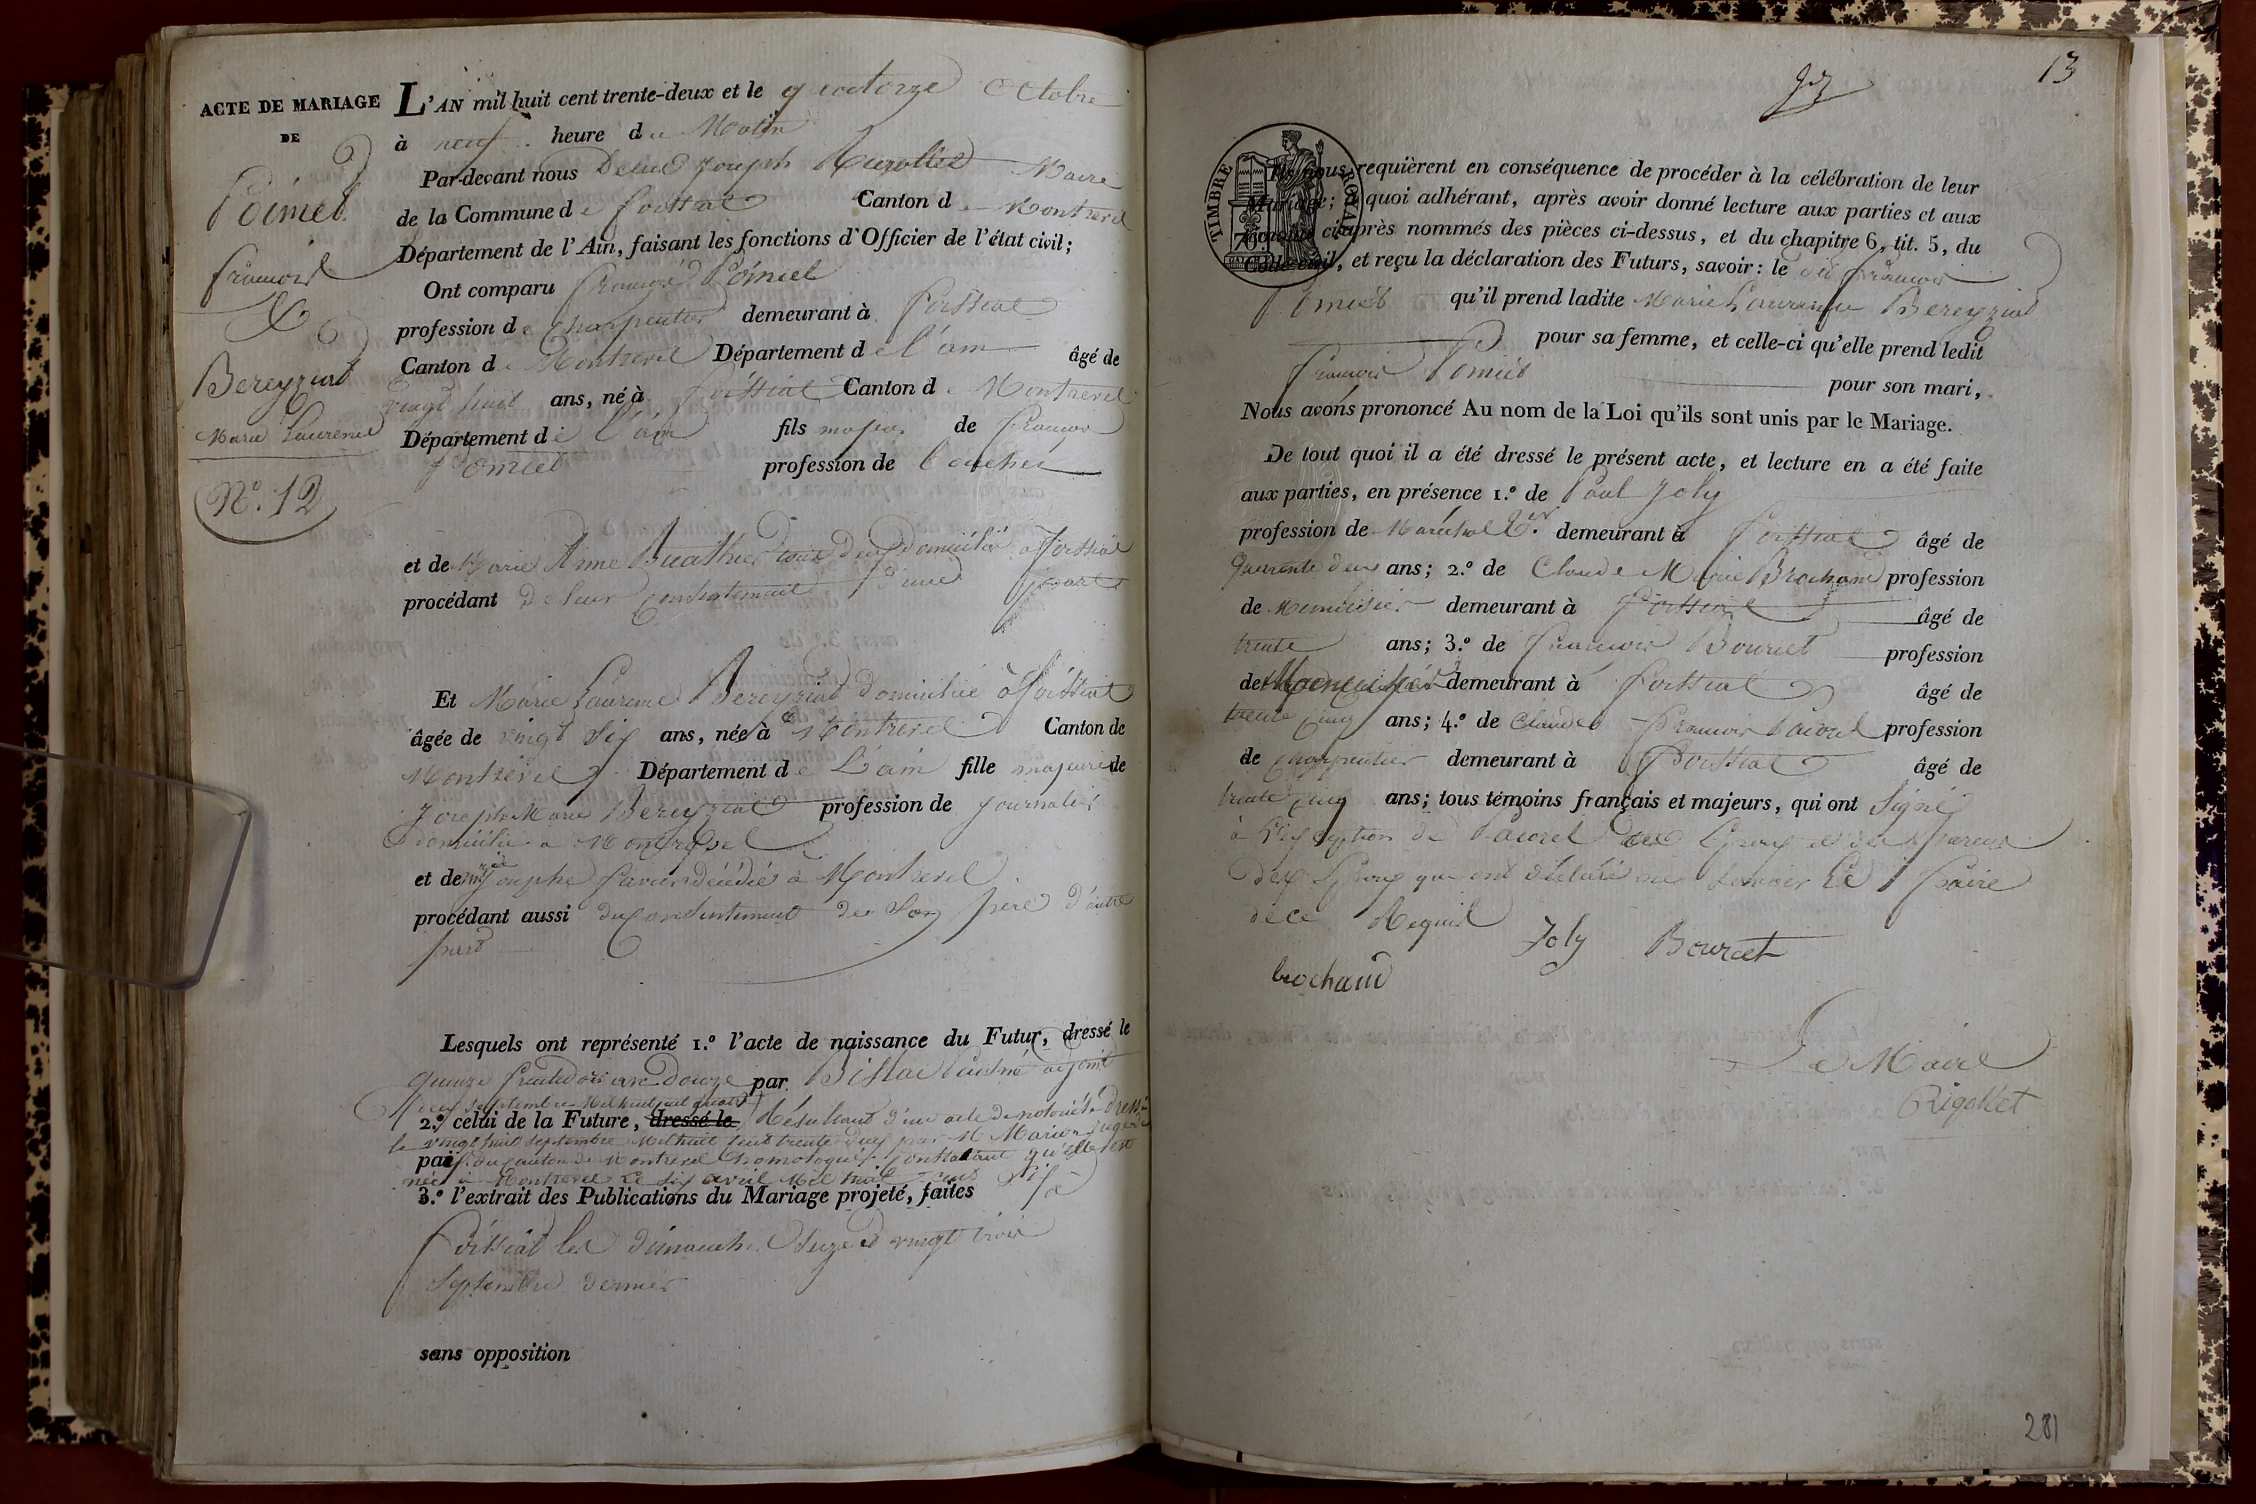 ACTE DE MARIAGE
DE
Poimet
françois
&
Bereyziat
Marie Laurence
N.º 12
L'AN mil huit cent trente-deux et le quatorze Octobre
à neuf heure du Matin
Par-devant nous Joseph Maire
de la Commune de foissiat Canton de Montrevel
Département de l'Ain, faisant les fonctions d'Officier de l'état civil;
Ont comparu françois Poimet
profession de Charpentier demeurant à foissiat
Canton de Montrevel Département de l'ain âgé de
vingt huit ans, né à foissiat Canton de Montrevel
Département de l'ain fils majeur de françois
Pomiet profession de
et de Marie Anne Buathier tous deux domiciliés à foissiat
procédant de leur consentement d'une part
Et Marie Laurence Bereyziat domiciliée à foissiat
âgée de vingt six ans, née à Montrevel Canton de
Montrevel Département de L'ain fille majeure de
Joseph Marie Bereyziat profession de journalier
domicilié à Montrevel
et de Josephe décédée à Montrevel
procédant aussi du consentement de son père d'autre
part
Lesquels ont représenté 1.º l'acte de naissance du Futur, dressé le
quinze fructidor an Douze par adjoint
deux septembre Mil huit cent quatre
2.º celui de la Future, dressé le Résultant d'un acte de notoriété dressé
le vingt huit septembre Mil huit cent trente deux par M. juge de
paix du canton de Montrevel homologué, constatant qu'elle est
née à Montrevel le six avril Mil huit cent six
3.º l'extrait des Publications du Mariage projeté, faites à
foissiat les dimanche seize et vingt trois
septembre dernier
sans opposition
13
TIMBRE ROYAL
70
Ils nous requièrent en conséquence de procéder à la célébration de leur
Mariage; à quoi adhérant, après avoir donné lecture aux parties et aux
témoins ci-après nommés des pièces ci-dessus, et du chapitre 6, tit. 5, du
Code civil, et reçu la déclaration des Futurs, savoir: le dit françois
Pomiet qu'il prend ladite Marie Laurence Bereyziat
pour sa femme, et celle-ci qu'elle prend ledit
françois Pomiet pour son mari,
Nous avons prononcé Au nom de la Loi qu'ils sont unis par le Mariage.
De tout quoi il a été dressé le présent acte, et lecture en a été faite
aux parties, en présence 1.º de Paul Joly
profession de Maréchal demeurant à foissiat âgé de
quarente deux ans; 2.º de Claude Marie Brochand profession
de Menuisier demeurant à foissiat âgé de
trente ans; 3.º de françois Bourcet profession
de demeurant à foissiat âgé de
trente cinq ans; 4.º de Claude françois Pacoud profession
de charpentier demeurant à foissiat âgé de
trente cinq ans; tous témoins français et majeurs, qui ont Signé
à l'exception de des Epoux et des parens
des Epoux qui ont déclaré ne savoir le faire
de ce Requis
Joly Bourcet
brochand
Le Maire
Rigollet
281